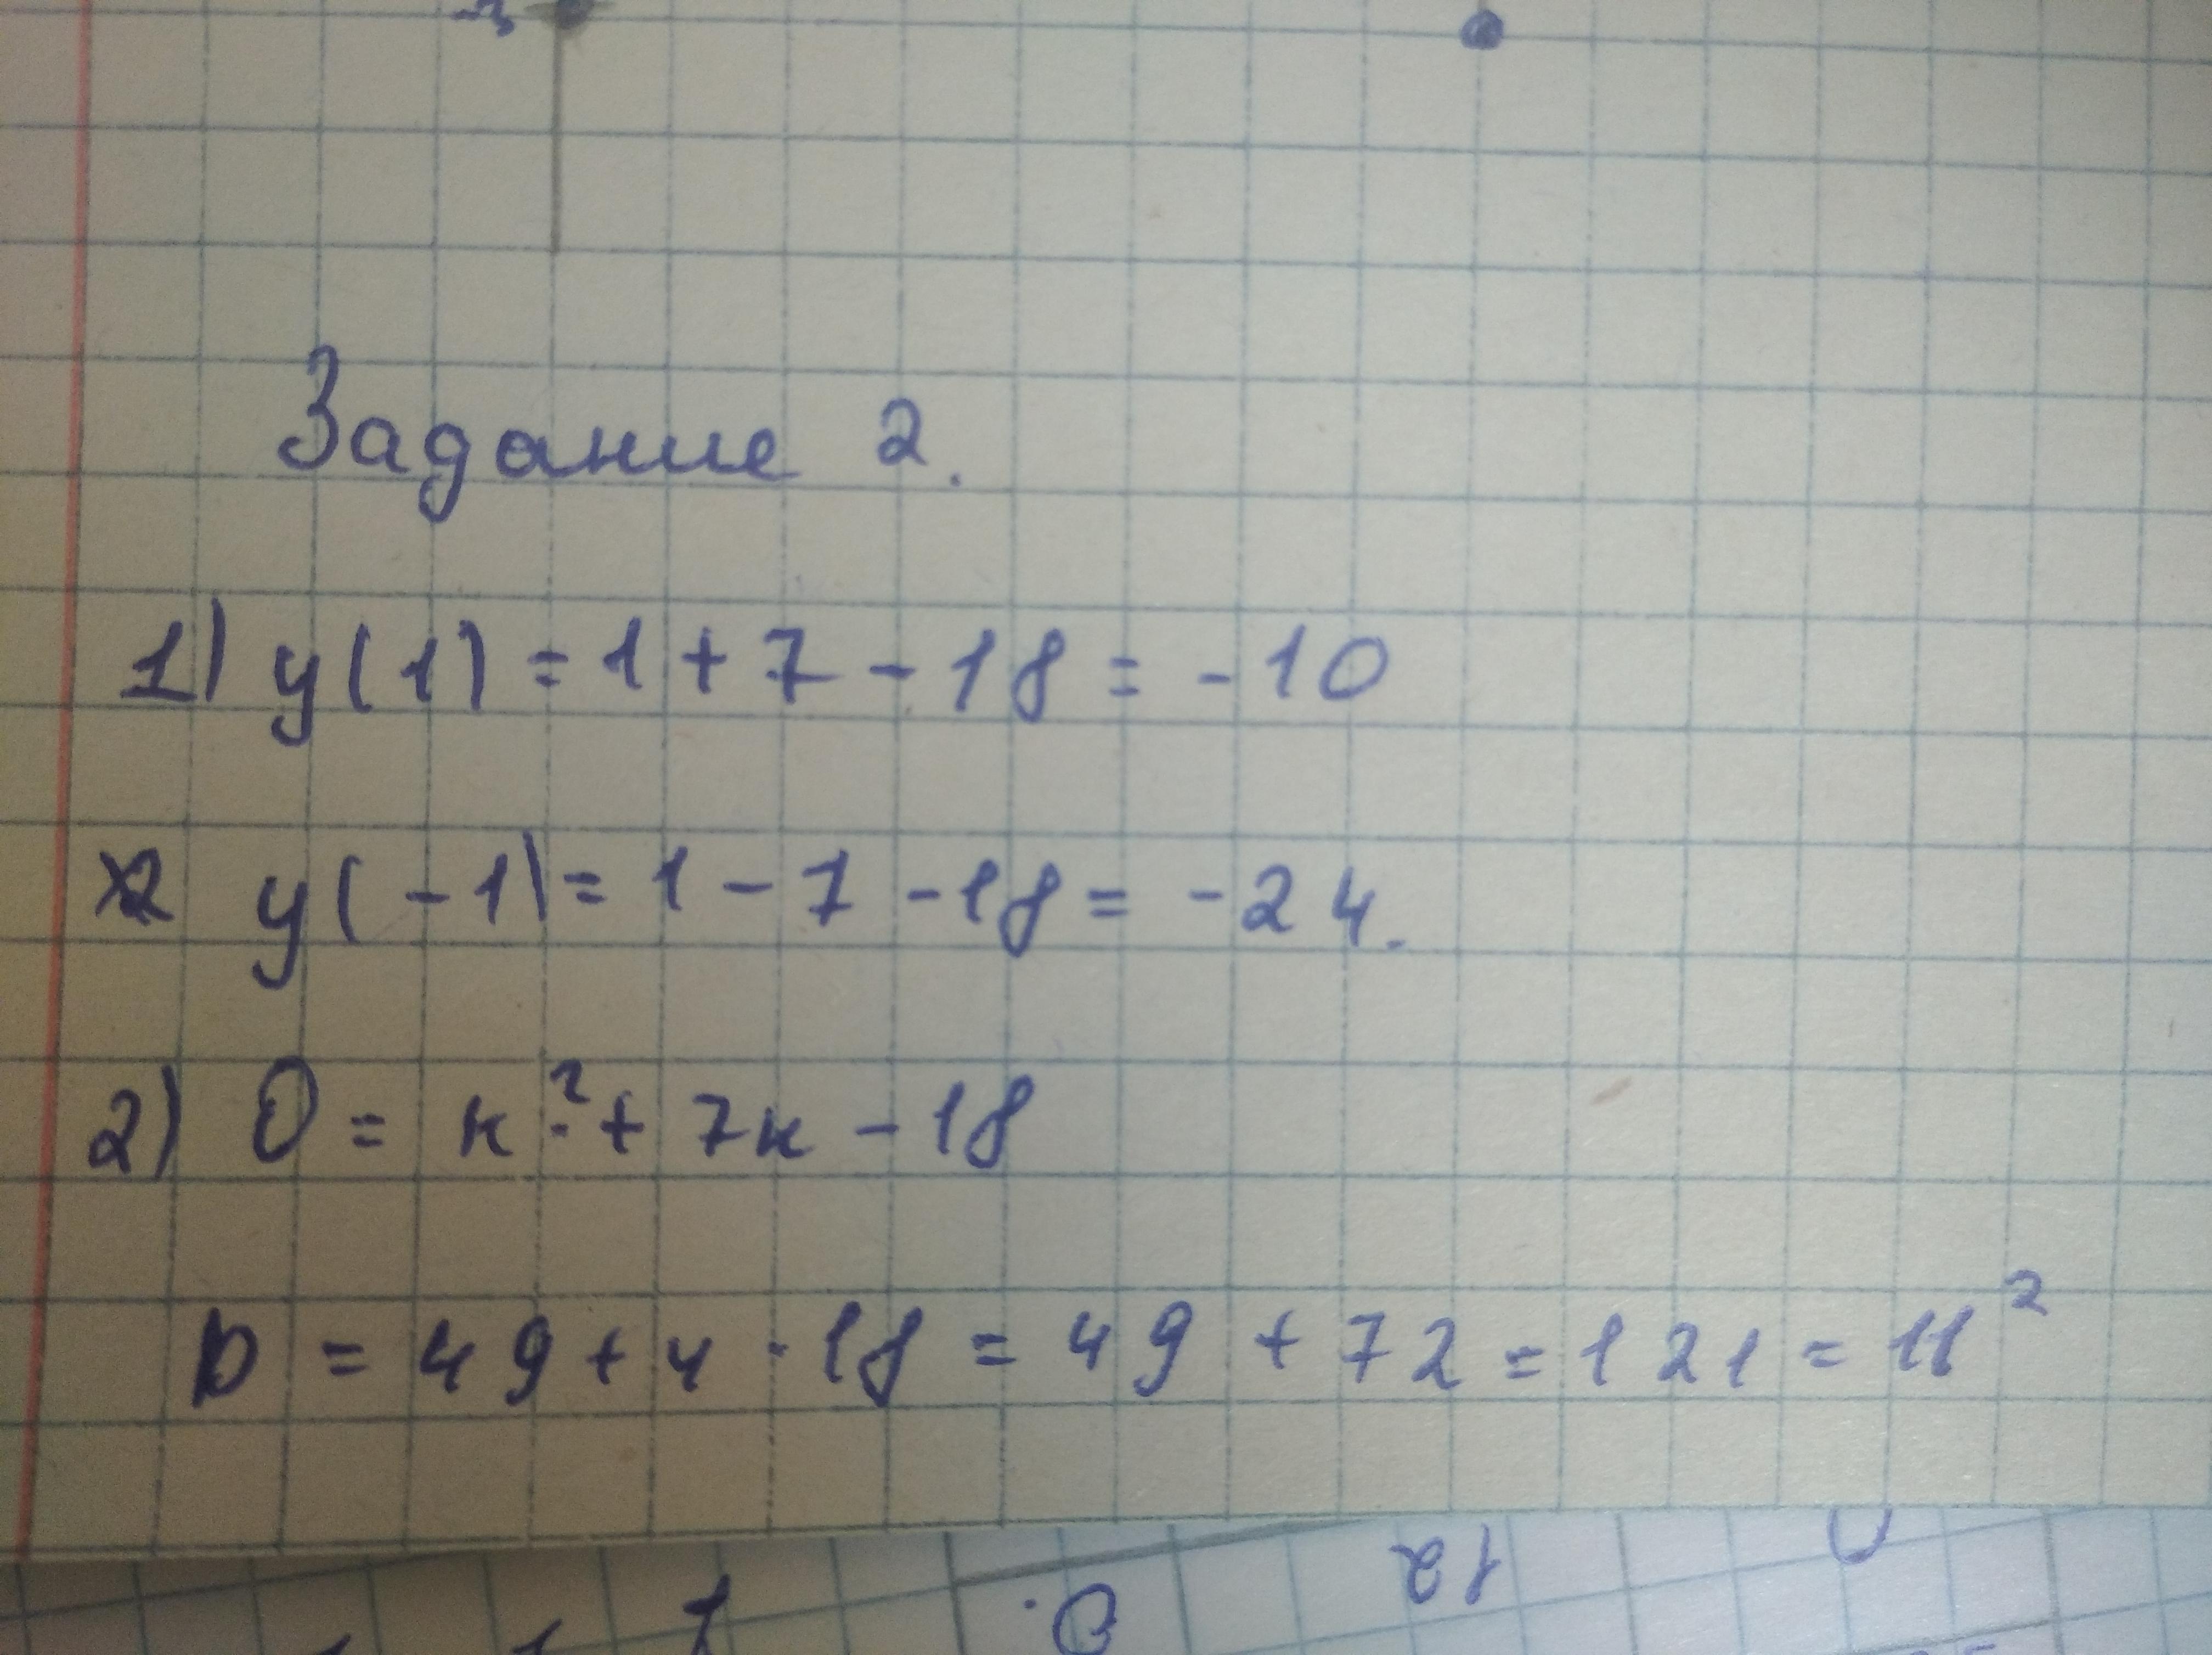 -3
Задание 2.
1) y(1) = 1 + 7 - 18 = -10
y(-1) = 1 - 7 - 18 = -24.
2) 0 = к² + 7к - 18
D = 49 + 4 · 18 = 49 + 72 = 121 = 11²
12